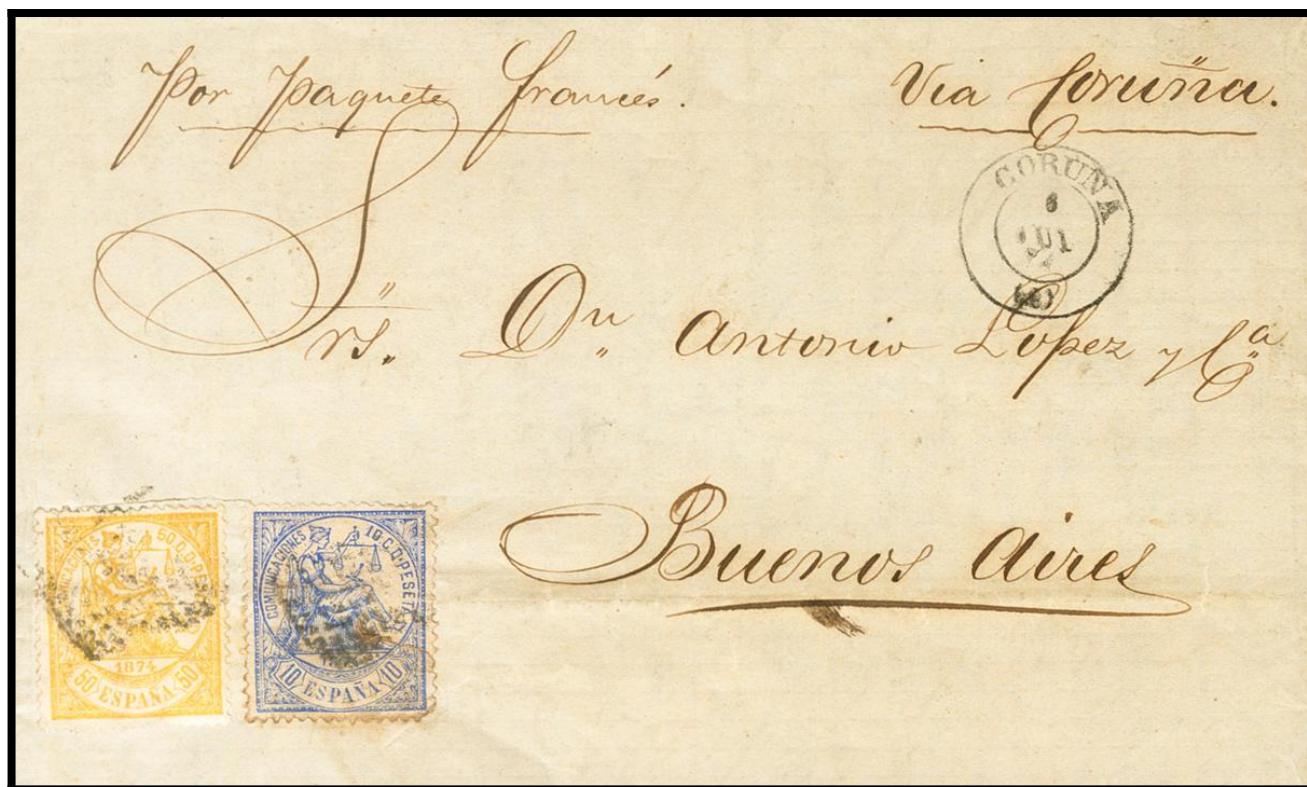 Por Paquete francés.
Via Coruña.
CORUÑA
6
JUL
Srs. Dn. Antonio Lopez y Ca
Buenos Aires
COMUNICACIONES 50 C. D PESETA
1874
50 ESPAÑA 50
COMUNICACIONES 10 C. D PESETA
10 ESPAÑA 10